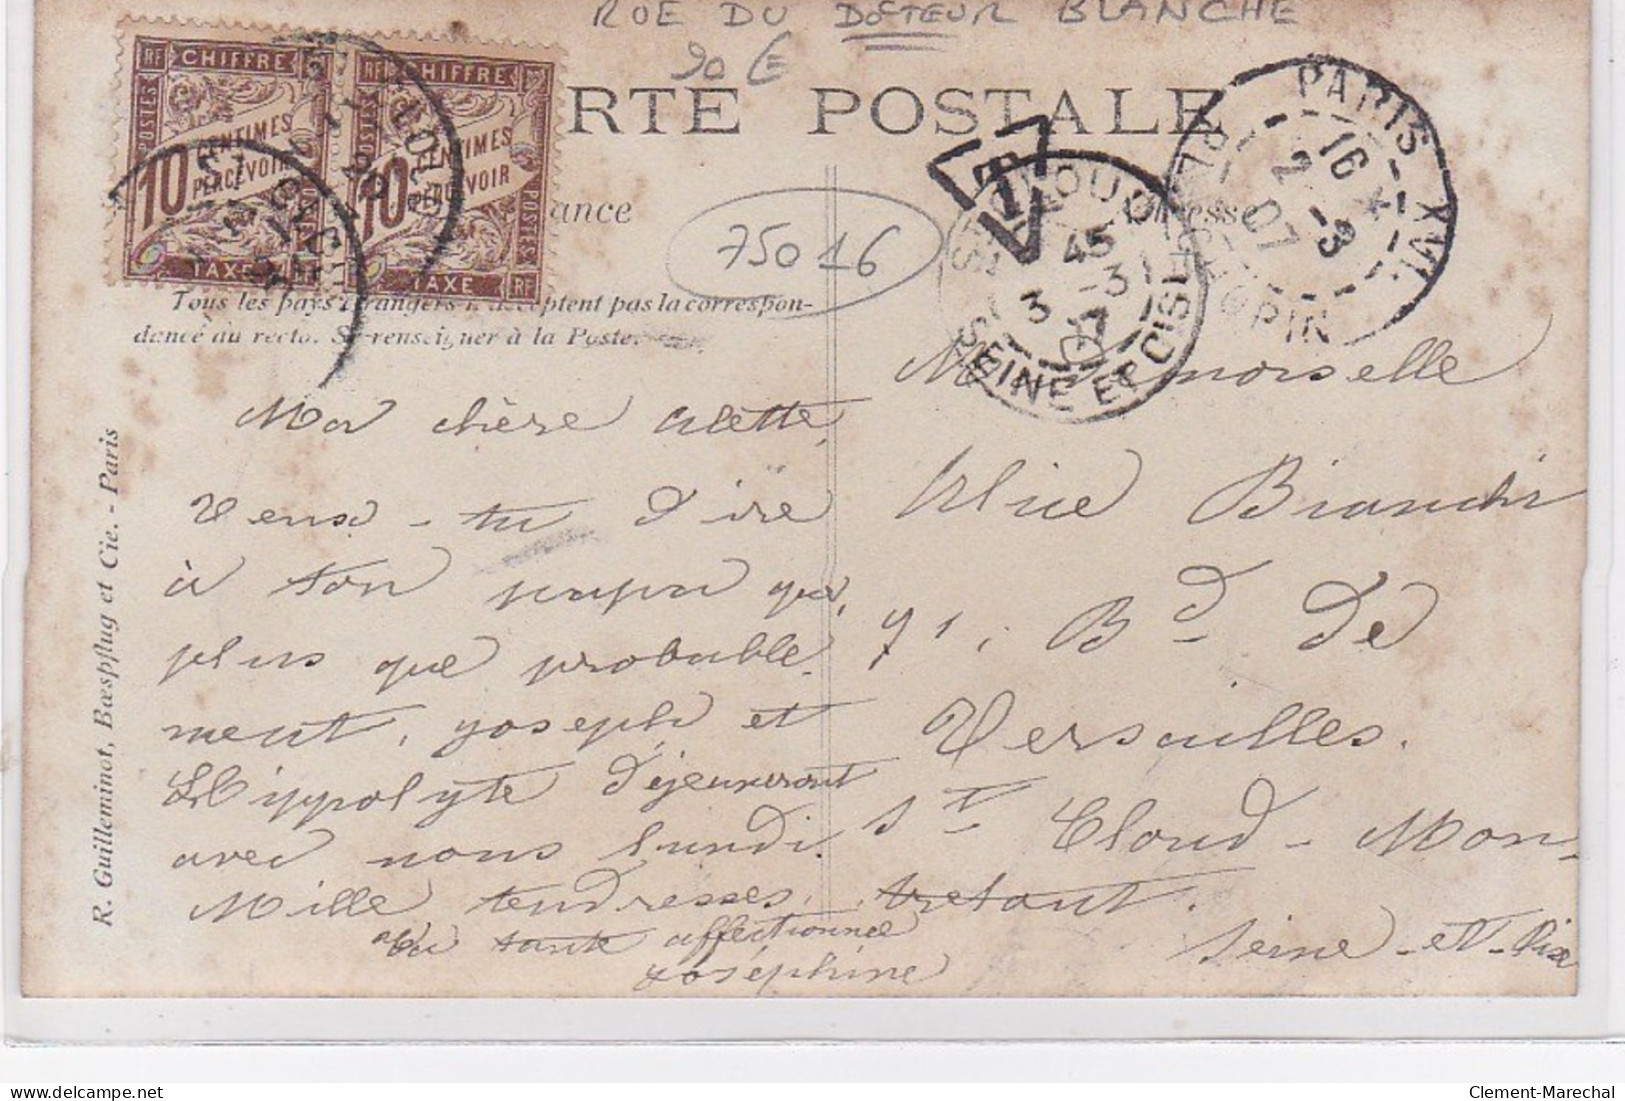 RUE DU DOCTEUR BLANCHE
90 €
RTE POSTALE
RF CHIFFRE
POSTES
10 CENTIMES
PERCEVOIR
TAXE
RF CHIFFRE
10 CENTIMES
PERCEVOIR
POSTES
TAXE RF
ance
75016
T
PARIS-XVI
16
2 -3
07
PL CHOPIN
ST CLOUD
45
3 -3
07
SEINE ET OISE
Tous les pays étrangers n'acceptent pas la correspon-
dance au recto. Se renseigner à la Poste.
R. Guilleminot, Bœspflug et Cie. - Paris
Ma chère Alette,
Veux-tu dire
à ton papa que,
plus que probable-
ment, Joseph et
Hippolyte déjeuneront
avec nous lundi.
Mille tendresses.
Ta tante affectionnée
Joséphine
Mademoiselle
Alice Bianchi
71, Bd de
Versailles.
St Cloud-Mon-
tretout.
Seine-et-Oise
Clement-Marechal